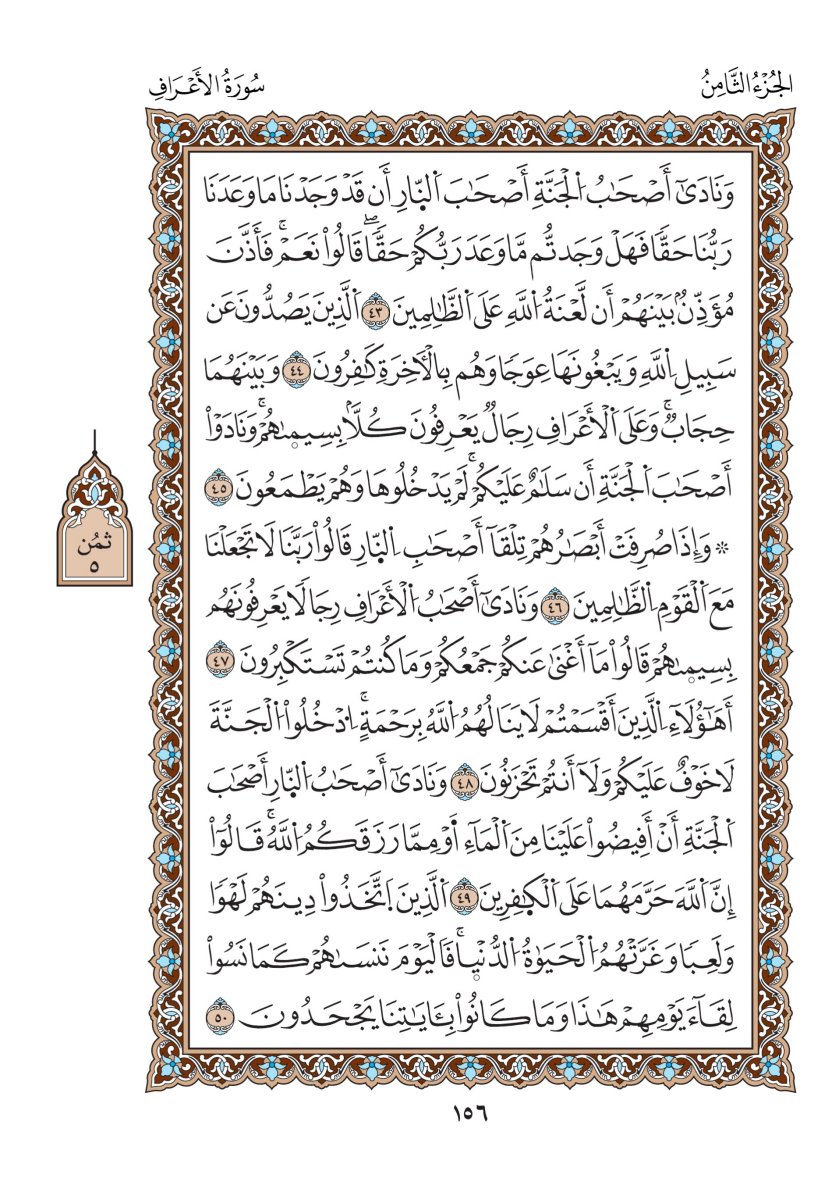 الجُزْءُ الثَّامِنُ
سُورَةُ الأَعْرَافِ
وَنَادَىٰٓ أَصْحَٰبُ اُ۬لْجَنَّةِ أَصْحَٰبَ اَ۬لنّ۪ارِ أَن قَدْ وَجَدْنَا مَا وَعَدَنَا
رَبُّنَا حَقّٗا فَهَلْ وَجَدتُّم مَّا وَعَدَ رَبُّكُمْ حَقّٗاۖ قَالُواْ نَعَمْۚ فَأَذَّنَ
مُؤَذِّنُۢ بَيْنَهُمْ أَن لَّعْنَةُ اُ۬للَّهِ عَلَى اَ۬لظَّٰلِمِينَ ٤٣ اَ۬لَّذِينَ يَصُدُّونَ عَن
سَبِيلِ اِ۬للَّهِ وَيَبْغُونَهَا عِوَجٗا وَهُم بِالْأٓخِرَةِ كَٰفِرُونَ ٤٤ وَبَيْنَهُمَا
حِجَابٞۚ وَعَلَى اَ۬لْأَعْرَافِ رِجَالٞ يَعْرِفُونَ كُلَّۢا بِسِيم۪ىٰهُمْۚ وَنَادَوْاْ
أَصْحَٰبَ اَ۬لْجَنَّةِ أَن سَلَٰمٌ عَلَيْكُمْۚ لَمْ يَدْخُلُوهَا وَهُمْ يَطْمَعُونَ ٤٥
۞ وَإِذَا صُرِفَتْ أَبْصَٰرُهُمْ تِلْقَآ أَصْحَٰبِ اِ۬لنّ۪ارِ قَالُواْ رَبَّنَا لَا تَجْعَلْنَا
مَعَ اَ۬لْقَوْمِ اِ۬لظَّٰلِمِينَ ٤٦ وَنَادَىٰٓ أَصْحَٰبُ اُ۬لْأَعْرَافِ رِجَالٗا يَعْرِفُونَهُم
بِسِيم۪ىٰهُمْ قَالُواْ مَآ أَغْنَىٰ عَنكُمْ جَمْعُكُمْ وَمَا كُنتُمْ تَسْتَكْبِرُونَ ٤٧
أَهَٰٓؤُلَآءِ اِ۬لَّذِينَ أَقْسَمْتُمْ لَا يَنَالُهُمُ اُ۬للَّهُ بِرَحْمَةٍۚ اِ۟دْخُلُواْ اُ۬لْجَنَّةَ
لَا خَوْفٌ عَلَيْكُمْ وَلَآ أَنتُمْ تَحْزَنُونَ ٤٨ وَنَادَىٰٓ أَصْحَٰبُ اُ۬لنّ۪ارِ أَصْحَٰبَ
اَ۬لْجَنَّةِ أَنْ أَفِيضُواْ عَلَيْنَا مِنَ اَ۬لْمَآءِ اَ۬وْ مِمَّا رَزَقَكُمُ اُ۬للَّهُۚ قَالُوٓاْ
إِنَّ اَ۬للَّهَ حَرَّمَهُمَا عَلَى اَ۬لْكٰ۪فِرِينَ ٤٩ اَ۬لَّذِينَ اَ۪تَّخَذُواْ دِينَهُمْ لَهْوٗا
وَلَعِبٗا وَغَرَّتْهُمُ اُ۬لْحَيَوٰةُ اُ۬لدُّنْي۪اۚ فَالْيَوْمَ نَنسَىٰهُمْ كَمَا نَسُواْ
لِقَآءَ يَوْمِهِمْ هَٰذَا وَمَا كَانُواْ بِـَٔايَٰتِنَا يَجْحَدُونَ ٥٠
ثُمُن
٥
١٥٦